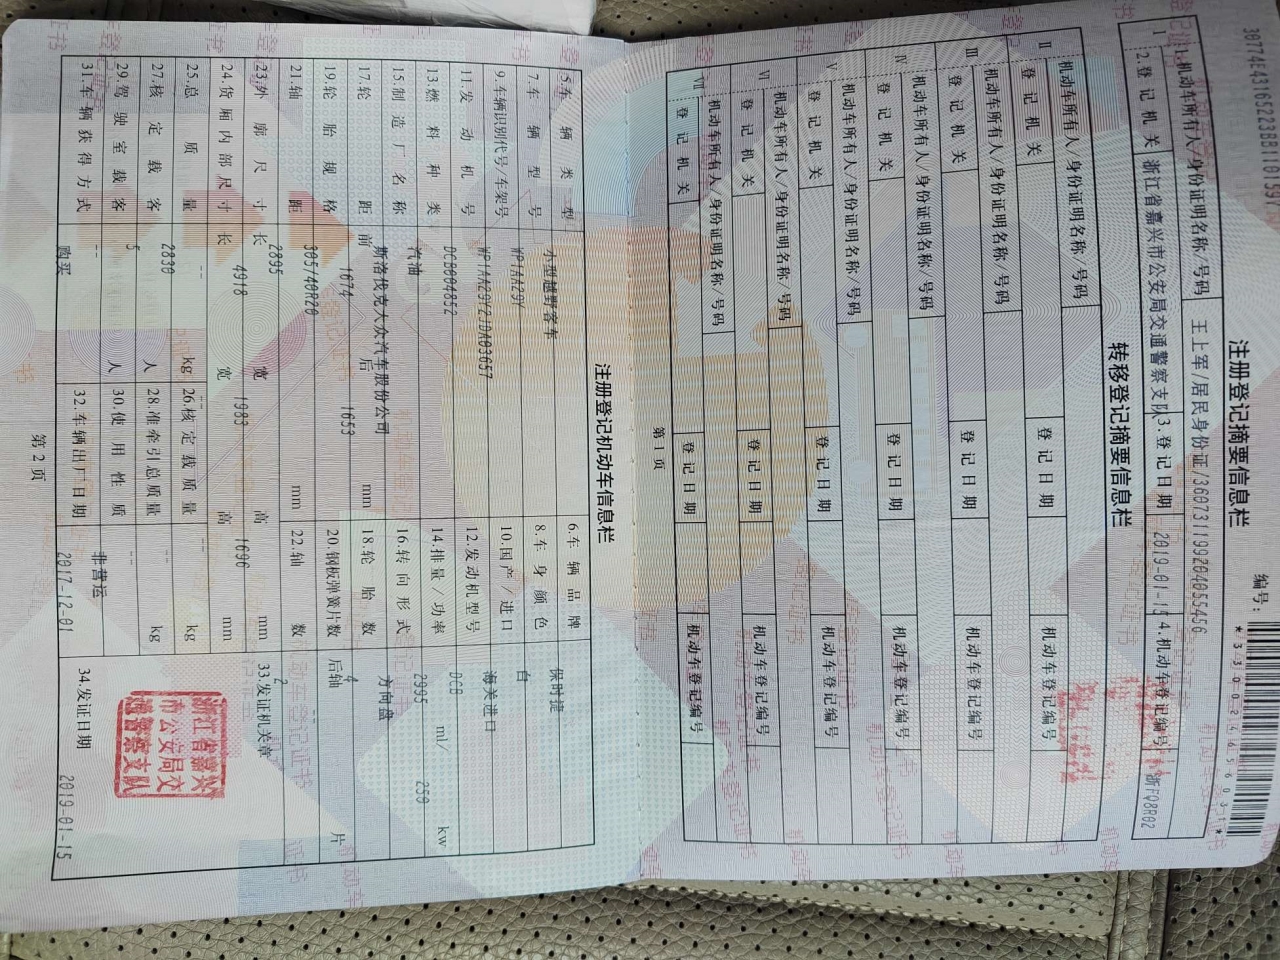 编号：
*330024656031*
注册登记摘要信息栏
Ⅰ
1.机动车所有人/身份证明名称/号码 王上军/居民身份证/360731199204055456
2.登记机关 浙江省嘉兴市公安局交通警察支队 3.登记日期 2019-01-15 4.机动车登记编号 浙FQ8R02
转移登记摘要信息栏
Ⅱ
机动车所有人/身份证明名称/号码
登记机关 登记日期 机动车登记编号
Ⅲ
机动车所有人/身份证明名称/号码
登记机关 登记日期 机动车登记编号
Ⅳ
机动车所有人/身份证明名称/号码
登记机关 登记日期 机动车登记编号
Ⅴ
机动车所有人/身份证明名称/号码
登记机关 登记日期 机动车登记编号
Ⅵ
机动车所有人/身份证明名称/号码
登记机关 登记日期 机动车登记编号
Ⅶ
机动车所有人/身份证明名称/号码
登记机关 登记日期 机动车登记编号
第1页
注册登记机动车信息栏
5.车辆类型 小型越野客车 6.车辆品牌 保时捷
7.车辆型号 WP1AA29Y 8.车身颜色 白
9.车辆识别代号/车架号 WP1AA29Y2JDA03657 10.国产/进口 海关进口
11.发动机号 DCB004852 12.发动机型号 DCB
13.燃料种类 汽油 14.排量/功率 2995 ml/ 250 kw
15.制造厂名称 斯洛伐克大众汽车股份公司 16.转向形式 方向盘
17.轮距 前 1674 后 1653 mm 18.轮胎数 4
19.轮胎规格 305/40R20 20.钢板弹簧片数 后轴 -- 片
21.轴距 2895 mm 22.轴数 2
23.外廓尺寸 长 4918 宽 1983 高 1696 mm 33.发证机关章
24.货厢内部尺寸 长 -- 宽 -- 高 -- mm
25.总质量 2830 kg 26.核定载质量 -- kg
27.核定载客 5 人 28.准牵引总质量 -- kg
29.驾驶室载客 -- 人 30.使用性质 非营运
31.车辆获得方式 购买 32.车辆出厂日期 2017-12-01 34.发证日期 2019-01-15
浙江省嘉兴
市公安局交
通警察支队
第2页